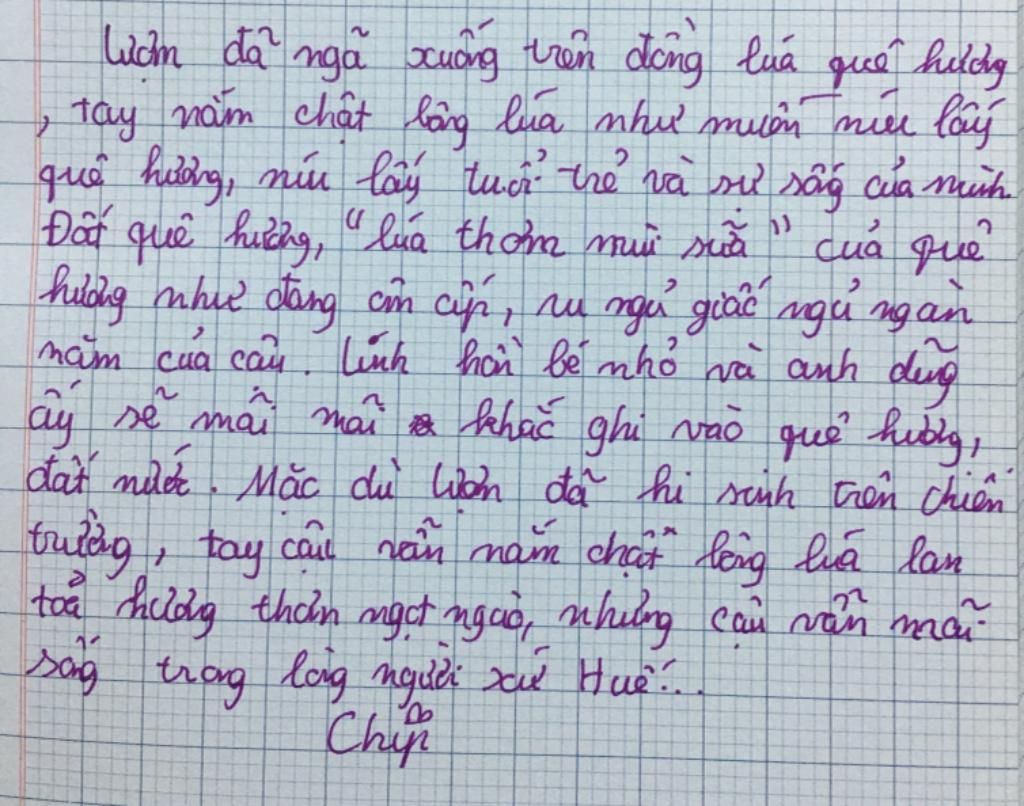 Lượm đã ngã xuống trên đồng luá quê hương
, tay nắm chặt bông lúa như muốn níu lấy
quê hương, níu lấy tuổi trẻ và sự sống của mình.
Đất quê hương, "lúa thơm mùi sữa" của quê
hương như đang ôm ấp, ru ngủ giấc ngủ ngàn
năm của cậu. Linh hồn bé nhỏ và anh dũng
ấy sẽ mãi mãi khắc ghi vào quê hương,
đất nước. Mặc dù Lượm đã hi sinh trên chiến
trường, tay cậu vẫn nắm chặt bông luá lan
toả hương thơm ngọt ngào, nhưng cậu vẫn mãi
sống trong lòng người xứ Huế...
Chíp